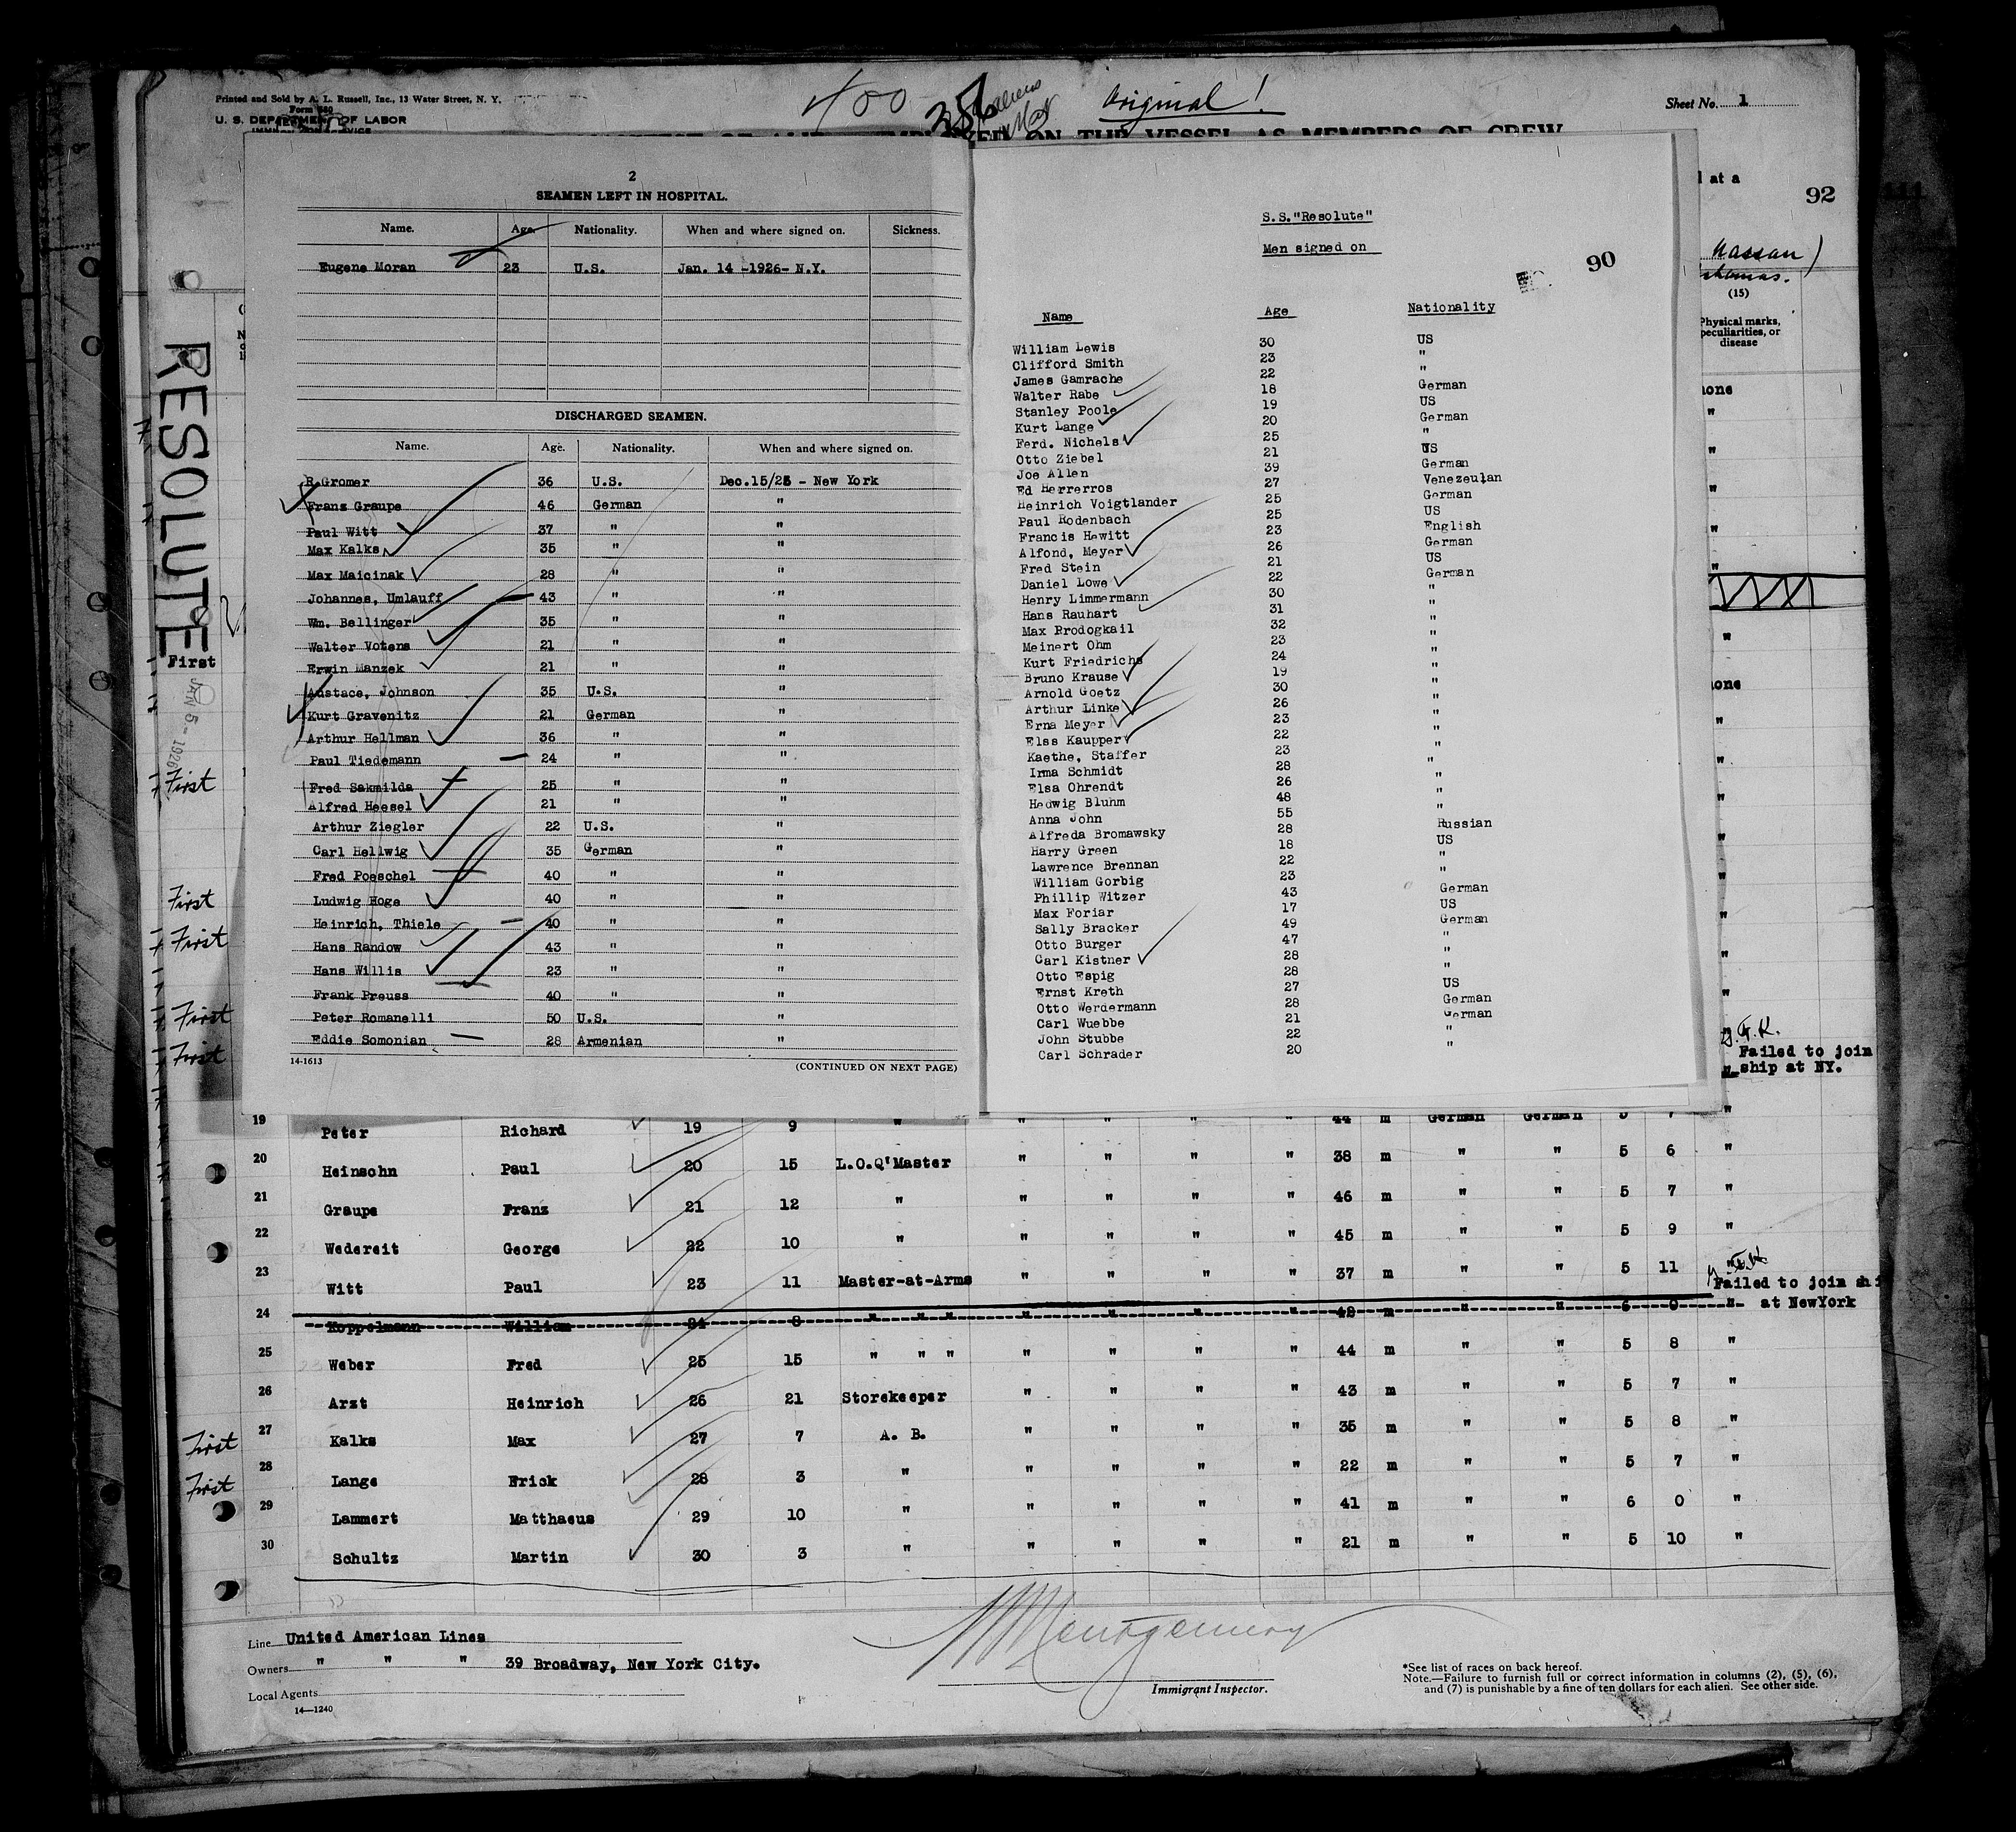 Printed and Sold by A. L. Russell, Inc., 13 Water Street, N. Y.
U. S. DEPARTMENT OF LABOR
400
Original!
Sheet No. 1
ON THE VESSEL AS MEMBERS OF CREW
at a
92
Nassau)
(15)
Physical marks, peculiarities, or disease
RESOLUTE
JAN 5 - 1926
2
SEAMEN LEFT IN HOSPITAL.
Name. Age. Nationality. When and where signed on. Sickness.
Eugene Moran 23 U.S. Jan. 14 -1926- N.Y.
DISCHARGED SEAMEN.
Name. Age. Nationality. When and where signed on.
R.Gromer 36 U.S. Dec.15/25 - New York
Franz Graupe 46 German "
Paul Witt 37 " "
Max Kalks 35 " "
Max Maicinak 28 " "
Johannes, Umlauff 43 " "
Wm. Bellinger 35 " "
Walter Votens 21 " "
Erwin Manzek 21 " "
Austace, Johnson 35 U.S. "
Kurt Gravenitz 21 German "
Arthur Hellman 36 " "
Paul Tiedemann 24 " "
Fred Sakmilda 25 " "
Alfred Heesel 21 " "
Arthur Ziegler 22 U.S. "
Carl Hellwig 35 German "
Fred Poeschel 40 " "
Ludwig Hoge 40 " "
Heinrich, Thiele 40 " "
Hans Randow 43 " "
Hans Willis 23 " "
Frank Preuss 40 " "
Peter Romanelli 50 U.S. "
Eddie Somonian 28 Armenian "
14-1613
(CONTINUED ON NEXT PAGE)
S.S."Resolute"
Men signed on
90
Name Age Nationality
William Lewis 30 US
Clifford Smith 23 "
James Gamrache 22 "
Walter Rabe 18 German
Stanley Poole 19 US
Kurt Lange 20 German
Ferd. Nichels 25 "
Otto Ziebel 21 US
Joe Allen 39 German
Ed Herrerros 27 Venezeulan
Heinrich Voigtlander 25 German
Paul Rodenbach 25 US
Francis Hewitt 23 English
Alfond, Meyer 26 German
Fred Stein 21 US
Daniel Lowe 22 German
Henry Limmermann 30 "
Hans Rauhart 31 "
Max Brodogkail 32 "
Meinert Ohm 23 "
Kurt Friedrichs 24 "
Bruno Krause 19 "
Arnold Goetz 30 "
Arthur Linke 26 "
Erna Meyer 23 "
Elss Kaupper 22 "
Kaethe, Staffer 23 "
Irma Schmidt 28 "
Elsa Ohrendt 26 "
Hedwig Bluhm 48 "
Anna John 55 "
Alfreda Bromawsky 28 Russian
Harry Green 18 US
Lawrence Brennan 22 "
William Gorbig 23 "
Phillip Witzer 43 German
Max Foriar 17 US
Sally Bracker 49 German
Otto Burger 47 "
Carl Kistner 28 "
Otto Espig 28 "
Ernst Kreth 27 US
Otto Werdermann 28 German
Carl Wuebbe 21 German
John Stubbe 22 "
Carl Schrader 20 "
First
First
First
First
First
First
Failed to join
ship at NY.
19 Peter Richard 19 9 " " " " " 44 m German German 5 7 "
20 Heinsohn Paul 20 15 L.O.Q'Master " " " " 38 m " " 5 6 "
21 Graupe Franz 21 12 " " " " " 46 m " " 5 7 "
22 Wedereit George 22 10 " " " " " 45 m " " 5 9 "
23 Witt Paul 23 11 Master-at-Arms " " " " 37 m " " 5 11 "
Failed to join shi
at NewYork
24 Koppelmann William 24 8 " " " " " " " 42 m " " 6 0 "
25 Weber Fred 25 15 " " " " " " " 44 m " " 5 8 "
26 Arzt Heinrich 26 21 Storekeeper " " " " 43 m " " 5 7 "
First 27 Kalks Max 27 7 A. B. " " " " 35 m " " 5 8 "
First 28 Lange Erick 28 3 " " " " " 22 m " " 5 7 "
29 Lammert Matthaeus 29 10 " " " " " 41 m " " 6 0 "
30 Schultz Martin 30 3 " " " " " 21 m " " 5 10 "
Line United American Lines
Owners " " " 39 Broadway, New York City.
Local Agents
14—1240
Montgomery
Immigrant Inspector.
*See list of races on back hereof.
Note.—Failure to furnish full or correct information in columns (2), (5), (6),
and (7) is punishable by a fine of ten dollars for each alien. See other side.